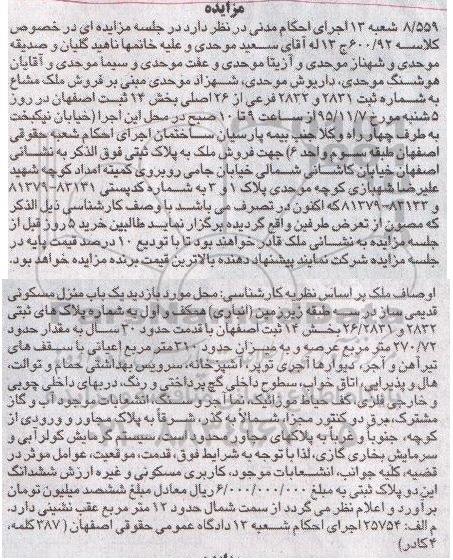 مزایده
۸/۵۵۹ شعبه ۱۳ اجرای احکام مدنی در نظر دارد در جلسه مزایده ای در خصوص
کلاسه ۶۰۰/۹۲ ج ۱۳ له آقای سعید موحدی و علیه خانمها ناهید گلبان و صدیقه
موحدی و شهناز موحدی و آزیتا موحدی و عفت موحدی و سیما موحدی و آقایان
هوشنگ موحدی، داریوش موحدی، شهرزاد موحدی مبنی بر فروش ملک مشاع
به شماره ثبت ۲۸۳۱ و ۲۸۳۲ فرعی از ۲۶ اصلی بخش ۱۴ ثبت اصفهان در روز
۵ شنبه مورخ ۹۵/۱۱/۷ از ساعت ۹ تا ۱۰ صبح در محل این اجرا (خیابان نیکبخت
به طرف چهارراه وکلا جنب بیمه پارسیان ساختمان اجرای احکام شعبه حقوقی
اصفهان طبقه سوم واحد ۶) جهت فروش ملک به پلاک ثبتی فوق الذکر به نشانی
اصفهان خیابان کاشانی شمالی خیابان جامی روبروی کمیته امداد کوچه شهید
علیرضا شهبازی کوچه موحدی پلاک ۱ و ۳ به شماره کدپستی ۸۳۱۳۱-۸۱۳۷۹
و ۸۳۱۳۳-۸۱۳۷۹ که اکنون در تصرف می باشد با وصف کارشناسی ذیل الذکر
که مصون از تعرض طرفین واقع گردیده برگزار نماید طالبین خرید ۵ روز قبل از
جلسه مزایده به نشانی ملک قادر خواهند بود تا با تودیع ۱۰ درصد قیمت پایه در
جلسه مزایده شرکت نمایند پیشنهاد دهنده بالاترین قیمت برنده مزایده خواهد بود.
اوصاف ملک بر اساس نظریه کارشناسی: محل مورد بازدید یک باب منزل مسکونی
قدیمی ساز در سه طبقه زیرزمین (انباری) همکف و اول به شماره پلاک های ثبتی
۲۸۳۲ و ۲۶/۲۸۳۱ بخش ۱۴ ثبت اصفهان با قدمت حدود ۳۰ سال به مقدار حدود
۲۷۰/۷۲ متر مربع عرصه و به میزان حدود ۳۱۰ متر مربع اعیانی با سقف های
تیرآهن و آجر، دیوارها آجری توپر، آشپزخانه، سرویس بهداشتی حمام و توالت،
هال و پذیرایی، اتاق خواب، سطوح داخلی گچ پرداختی و رنگ، دربهای داخلی چوبی
و خارجی فلزی، کف حیاط موزائیک، نما آجر و سنگ، انشعابات موجود آب و گاز
مشترک، برق دو کنتور مجزا، شمالاً به گذر، شرقاً به پلاک مجاور و ورودی از
کوچه، جنوباً و غرباً به پلاکهای مجاور محدود است، سیستم گرمایش کولر آبی و
سرمایش بخاری گازی، لذا با توجه به شرایط فوق، قدمت، موقعیت، عوامل موثر در
قضیه، کلیه جوانب، انشعابات موجود، کاربری مسکونی و غیره ارزش ششدانگ
این دو پلاک ثبتی به مبلغ ۶/۰۰۰/۰۰۰/۰۰۰ ریال معادل مبلغ ششصد میلیون تومان
برآورد و اعلام نظر می گردد از سمت شمال حدود ۱۲ متر مربع عقب نشینی دارد.
م الف: ۲۵۷۵۴ اجرای احکام شعبه ۱۳ دادگاه عمومی حقوقی اصفهان (۳۸۷ کلمه،
۴ کادر)